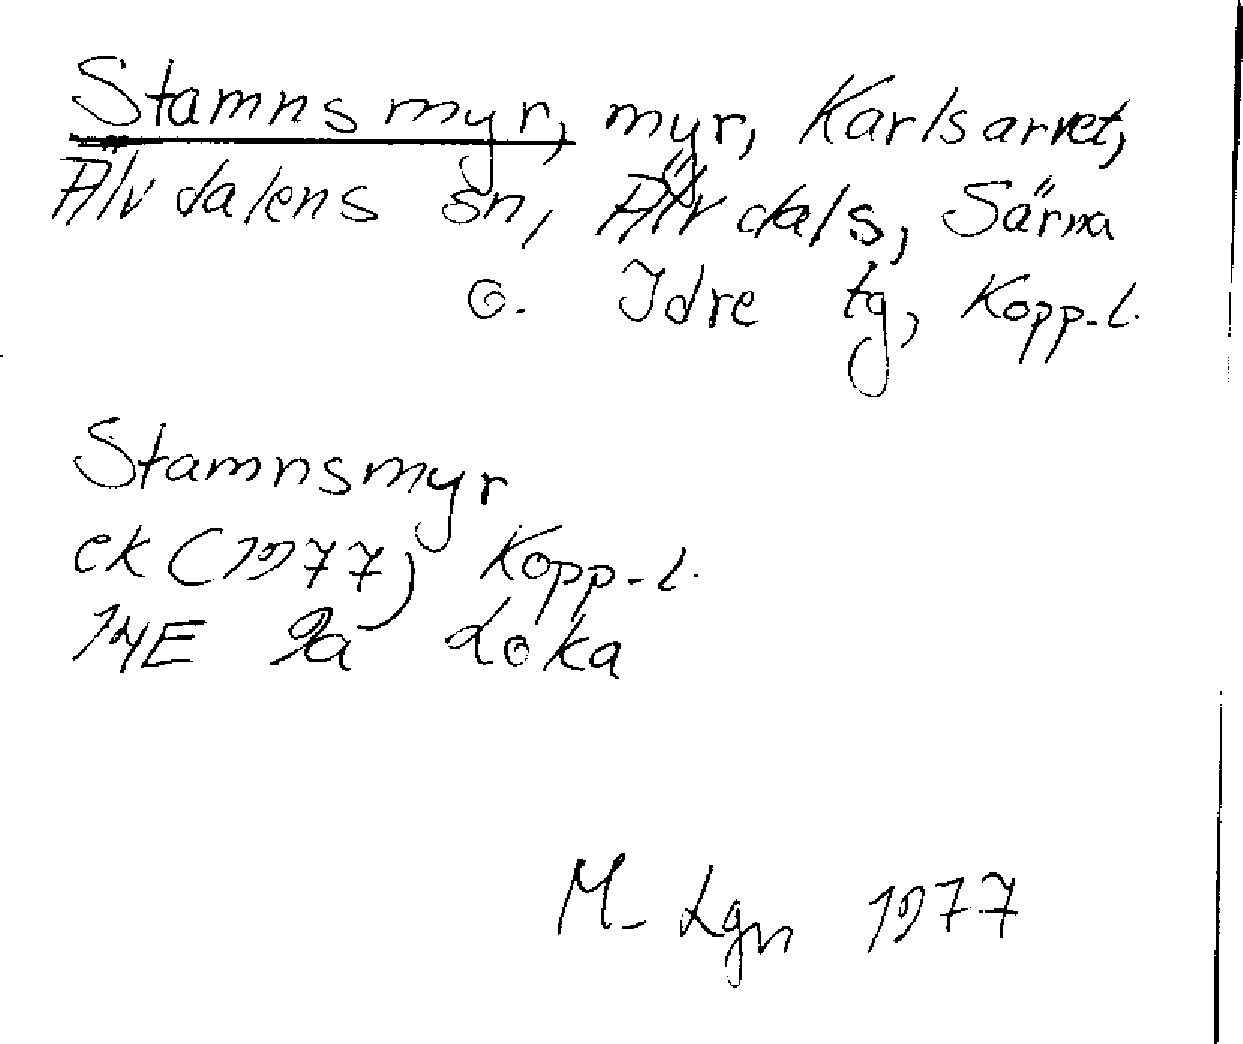 Stamnsmyr, myr, Karlsarvet,
Älvdalens sn, Älvdals, Särna
o. Idre tg, Kopp-l.
Stamnsmyr
ek (1977) Kopp-l.
14E 2a Loka
M- Lgn 1977